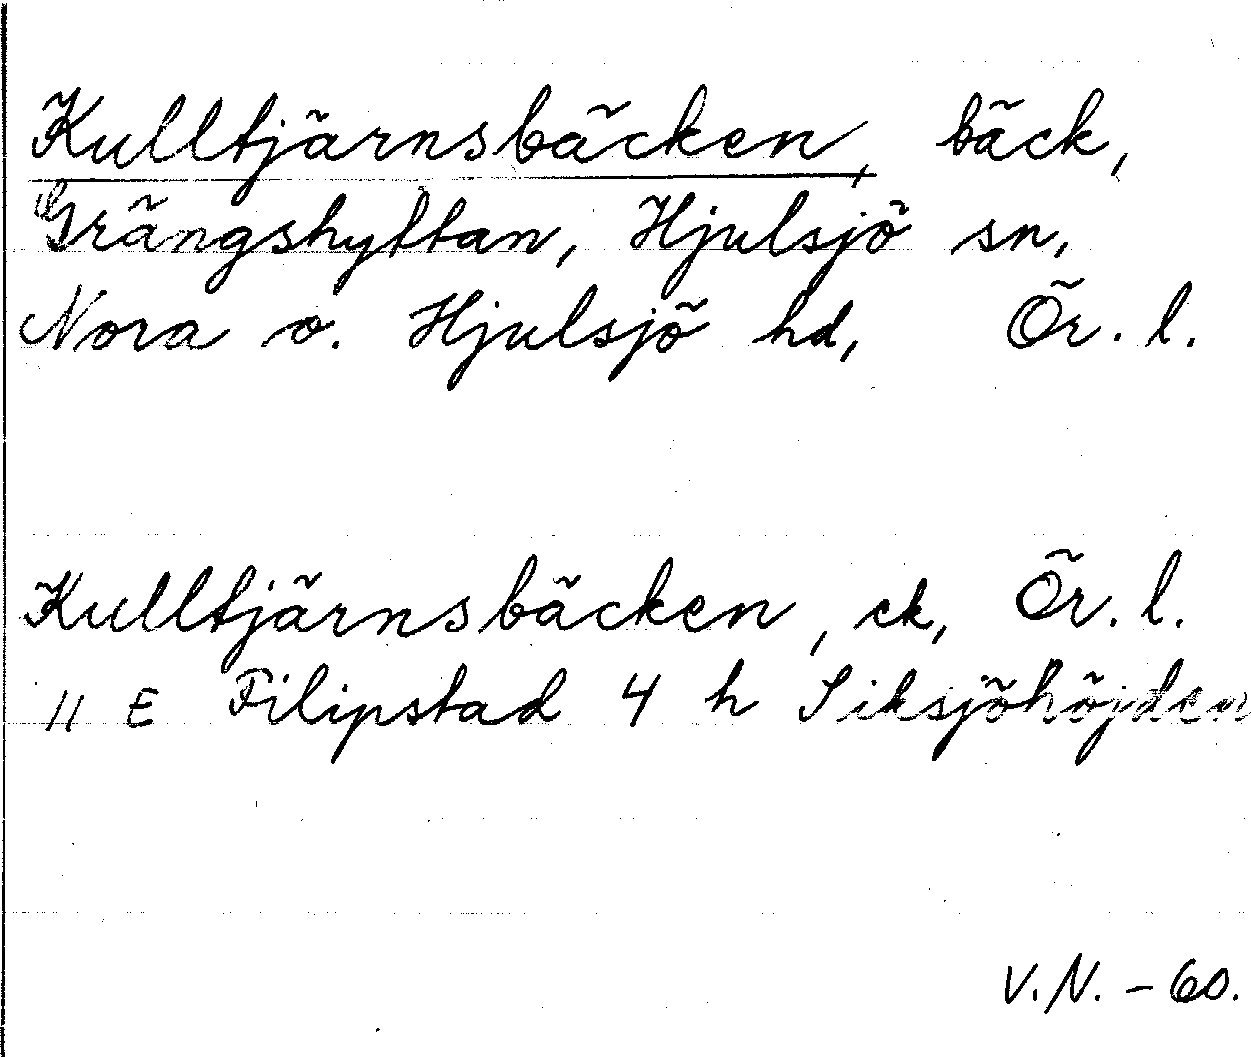 Kulltjärnsbäcken, bäck,
Grängshyttan, Hjulsjö sn,
Nora o. Hjulsjö hd, Ör. l.
Kulltjärnsbäcken, ek, Ör. l.
11 E Filipstad 4 h Siksjöhöjden
V.N. - 60.